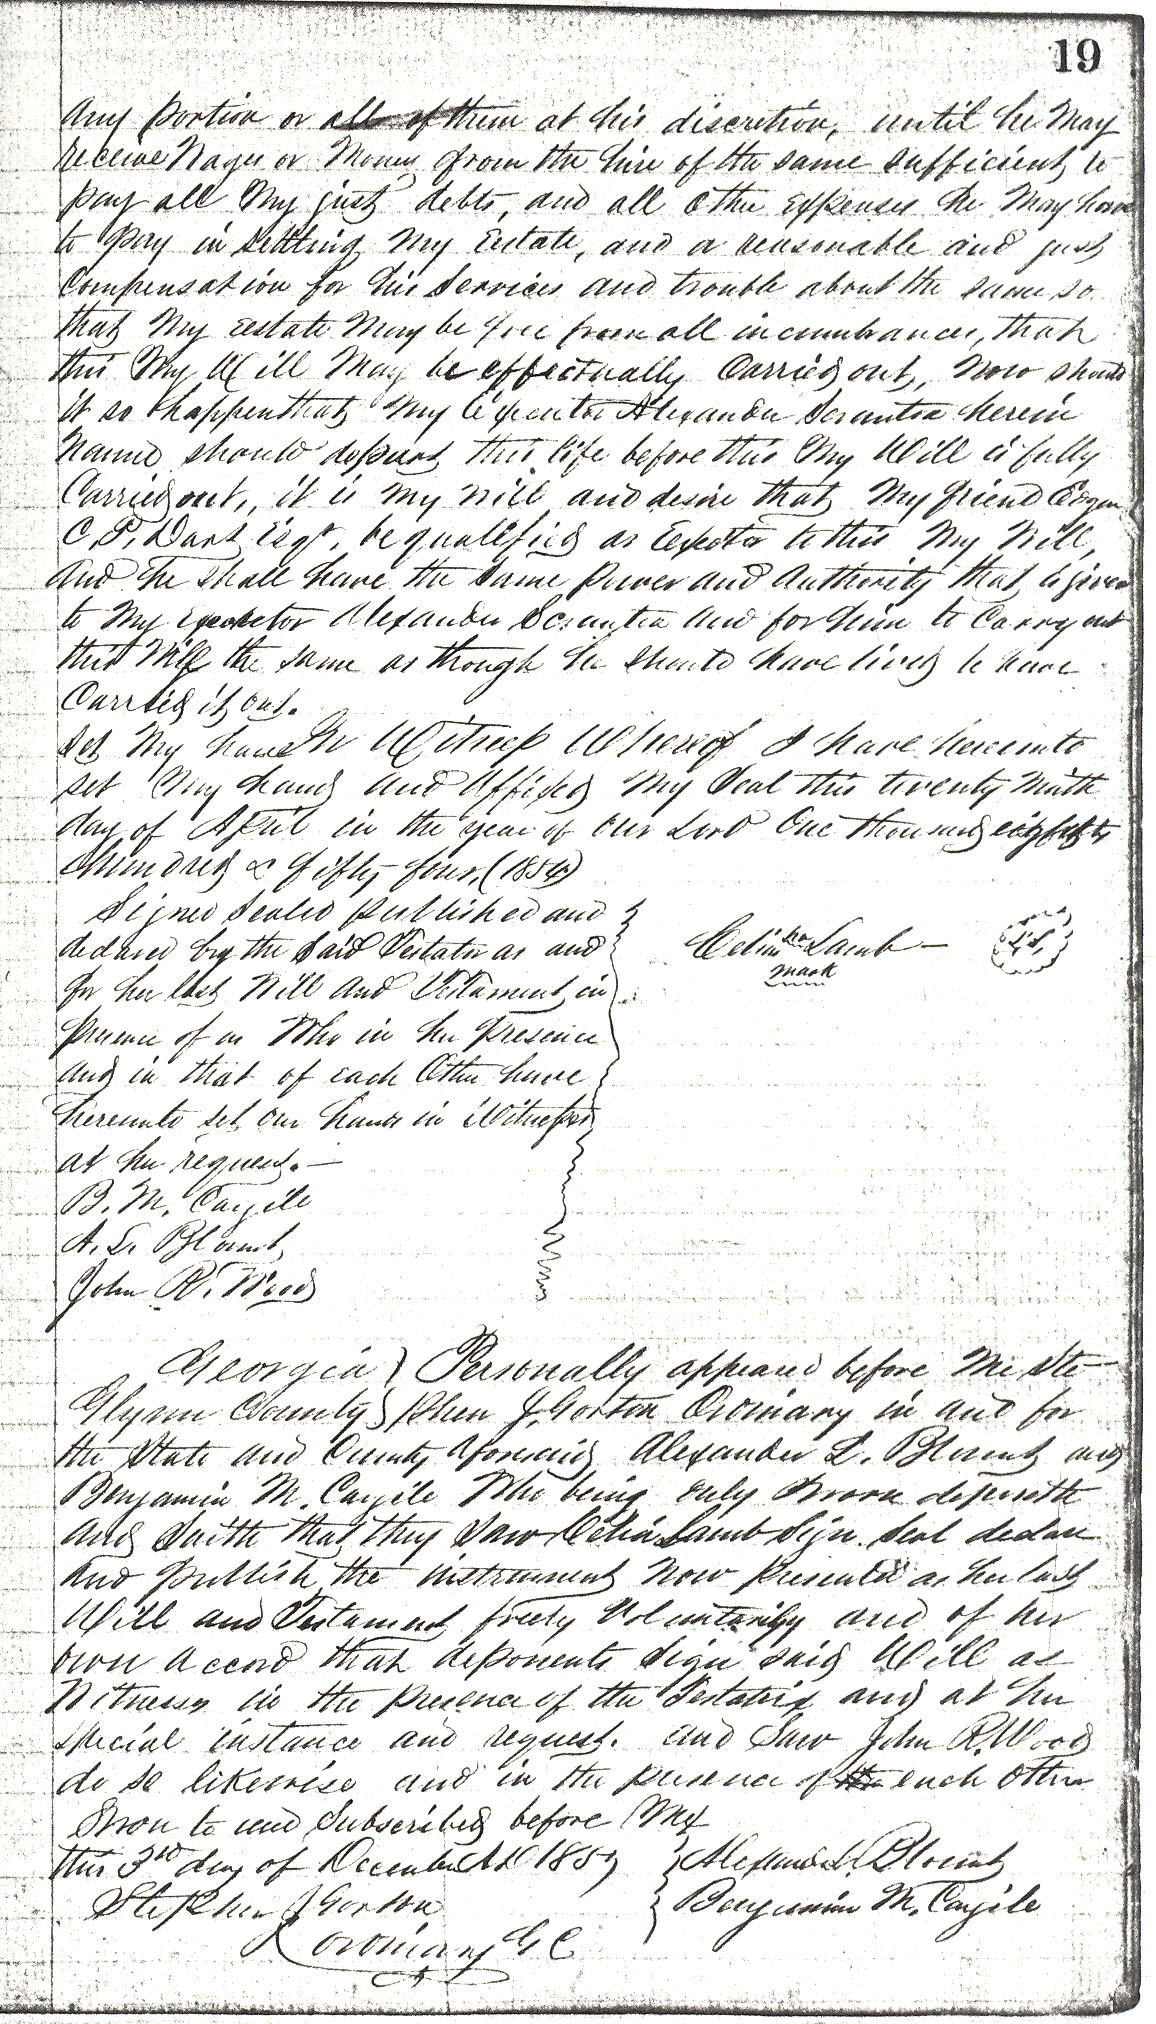 19
any portion or all of them at his discretion, until he may
receive Wages or Money from the hire of the same sufficient to
pay all My just debts, and all other expenses he May have
to pay in settling My Estate, and a reasonable and just
compensation for his services and trouble about the same so
that My estate May be free from all incumbrances, that
this My Will May be effectually Carried out, now should
it so happen that My Executor Alexander Scrantin herein
Named should depart this life before this My Will is fully
Carried out, it is My Will and desire that My friend
C. P. Dart Esqr. be qualified as Exector to this My Will,
and he shall have the same power and Authority that is given
to My Executor Alexander Scrantin and for him to Carry out
this Will the same as though he should have lived to have
Carried it out.
Set My hand In Witness Whereof I have hereunto
set My hand and Affixed My Seal this twenty ninth
day of April in the year of Our Lord One thousand eight
hundred & fifty four, (1854)
Signed Sealed published and
declared by the Said Testator as and
for her last Will and Testament in
presence of us Who in her Presence
and in that of each Other have
hereunto set our hands in Witness
at her request. —
B. M. Cargile
A. L. Blount
John R. Wood
Celia her Lamb —
mark
LS
Georgia } Personally appeared before Me Ste
Glynn County } phen J. Gorton Ordinary in and for
the State and County Aforesaid Alexander L. Blount and
Benjamin M. Cargile Who being duly Sworn deposeth
and Saith that they Saw Celia Lamb Sign Seal declare
and publish the instrument now presented as her last
Will and Testament freely Voluntarily and of her
own Accord that deponents Sign said Will as
Witnesses in the presence of the Testatrix and at her
special instance and request. and Saw John R. Wood
do so likewise and in the presence of each other
Sworn to and Subscribed before Me
this 3rd day of December AD 1857
Alexander L. Blount
Stephen J Gorton
Benjamin M. Cargile
Ordinary G C